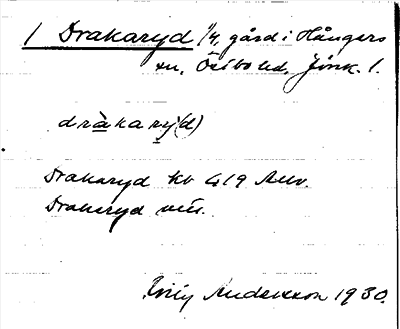 1 Drakaryd 1/4, gård i Hångers
sn, Östbo hd, Jönk. l.
dràkary(d)
Drakaryd kb 419 Allv.
Drakaryd
Andersson 1930.